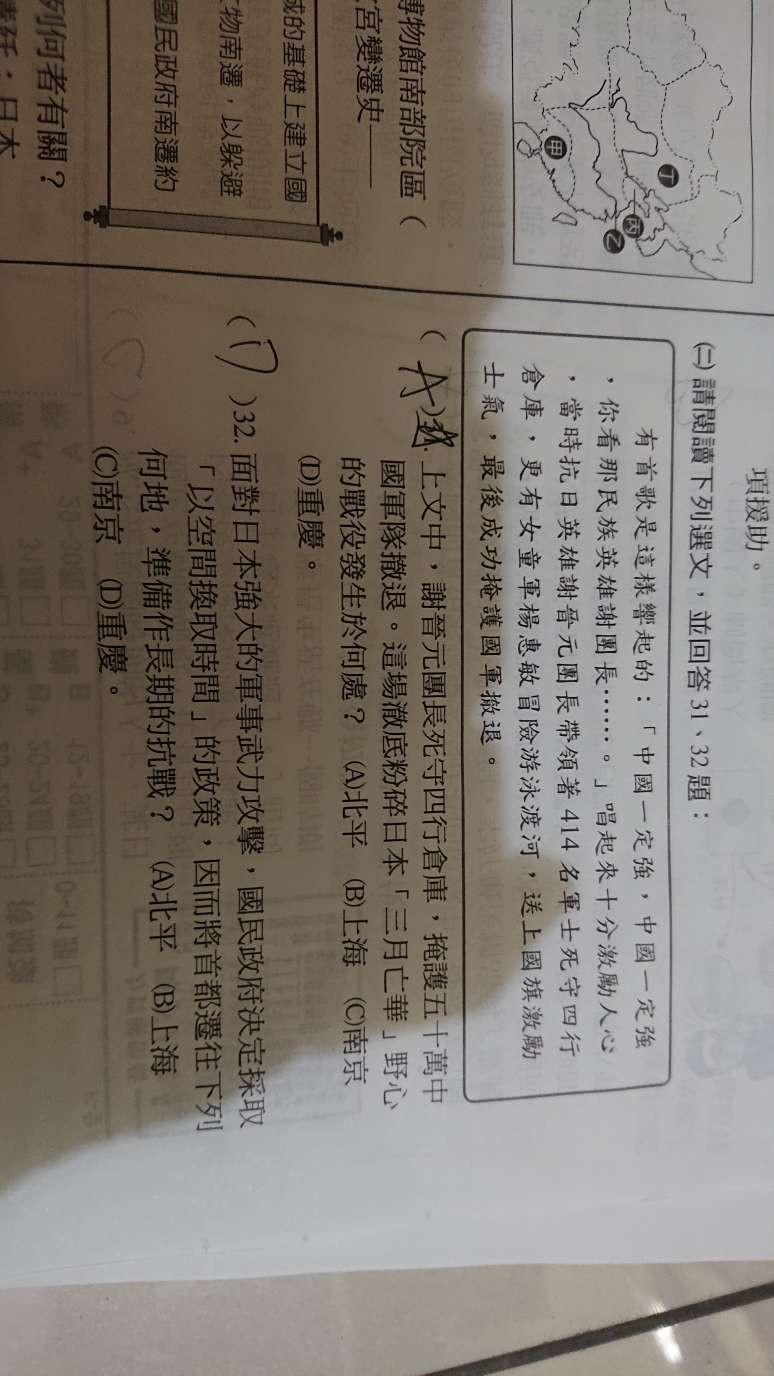 項援助。
㈡請閱讀下列選文，並回答31、32題：
有首歌是這樣響起的：「中國一定強，中國一定強
，你看那民族英雄謝團長……。」唱起來十分激勵人心
，當時抗日英雄謝晉元團長帶領著414名軍士死守四行
倉庫，更有女童軍楊惠敏冒險游泳渡河，送上國旗激勵
士氣，最後成功掩護國軍撤退。
( A )31.上文中，謝晉元團長死守四行倉庫，掩護五十萬中
國軍隊撤退。這場澈底粉碎日本「三月亡華」野心
的戰役發生於何處？ (A)北平 (B)上海 (C)南京
(D)重慶。
( D )32.面對日本強大的軍事武力攻擊，國民政府決定採取
「以空間換取時間」的政策，因而將首都遷往下列
何地，準備作長期的抗戰？ (A)北平 (B)上海
(C)南京 (D)重慶。
甲
乙
丙
丁
博物館南部院區（
宮變遷史——
成的基礎上建立國
物南遷，以躲避
國民政府南遷約
列何者有關？
：日本